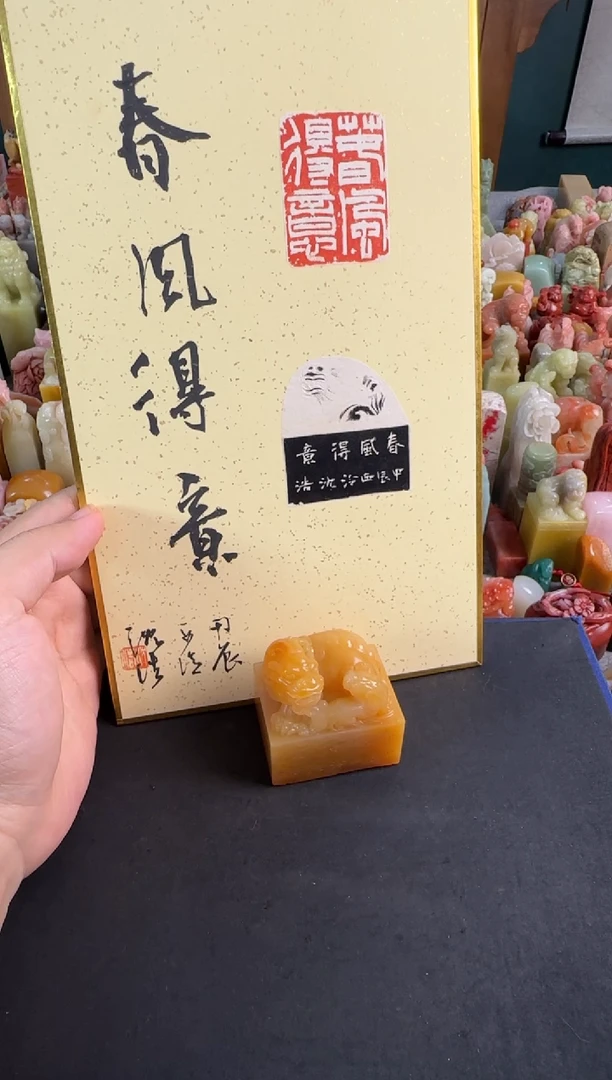 春风得意
甲辰
西泠
沈浩
春風
得意
春風得意
甲辰西泠沈浩